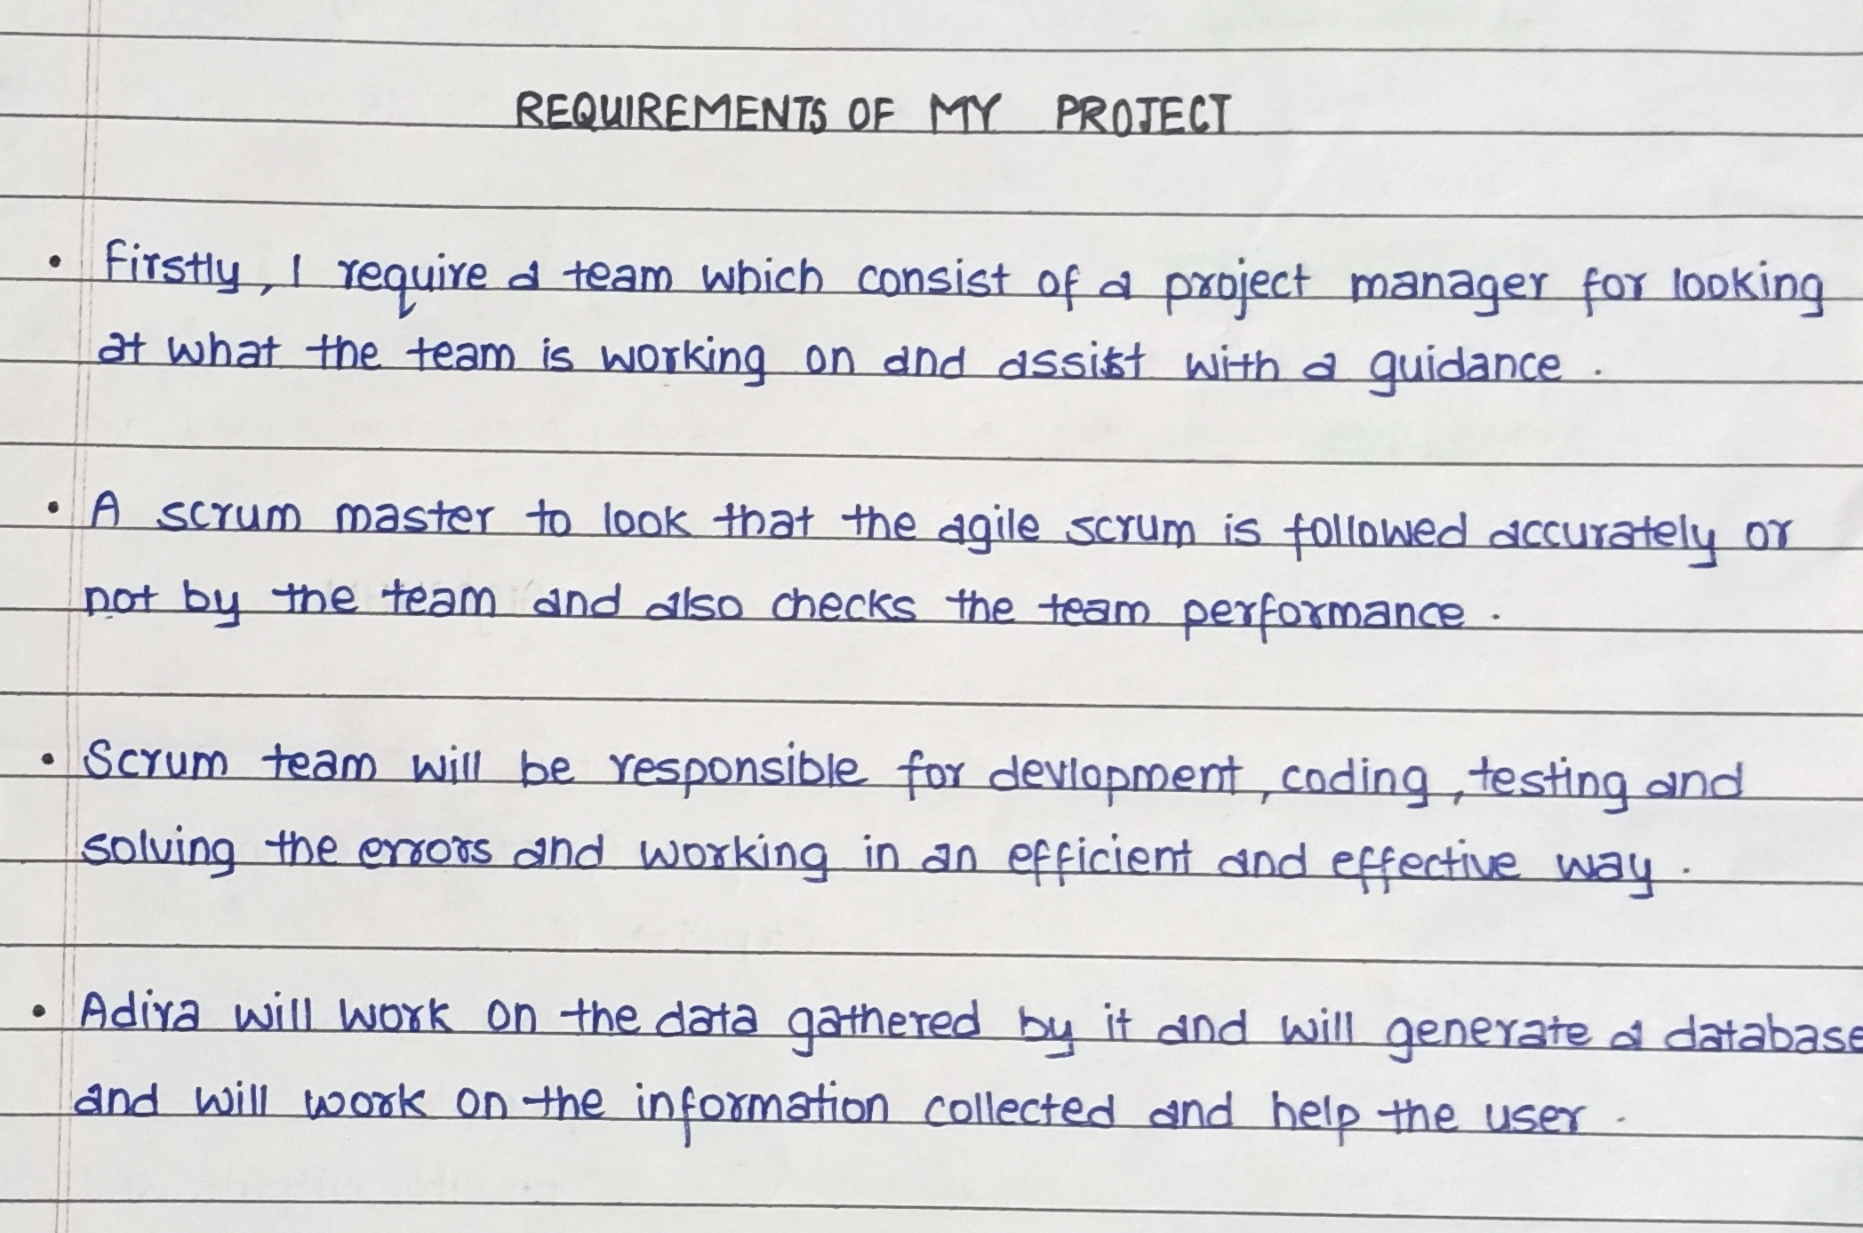 REQUIREMENTS OF MY PROJECT
• Firstly, I require a team which consist of a project manager for looking
at what the team is working on and assist with a guidance.
• A scrum master to look that the agile scrum is followed accurately or
not by the team and also checks the team performance.
• Scrum team will be responsible for devlopment, coding, testing and
solving the errors and working in an efficient and effective way.
• Adira will work on the data gathered by it and will generate a database
and will work on the information collected and help the user.